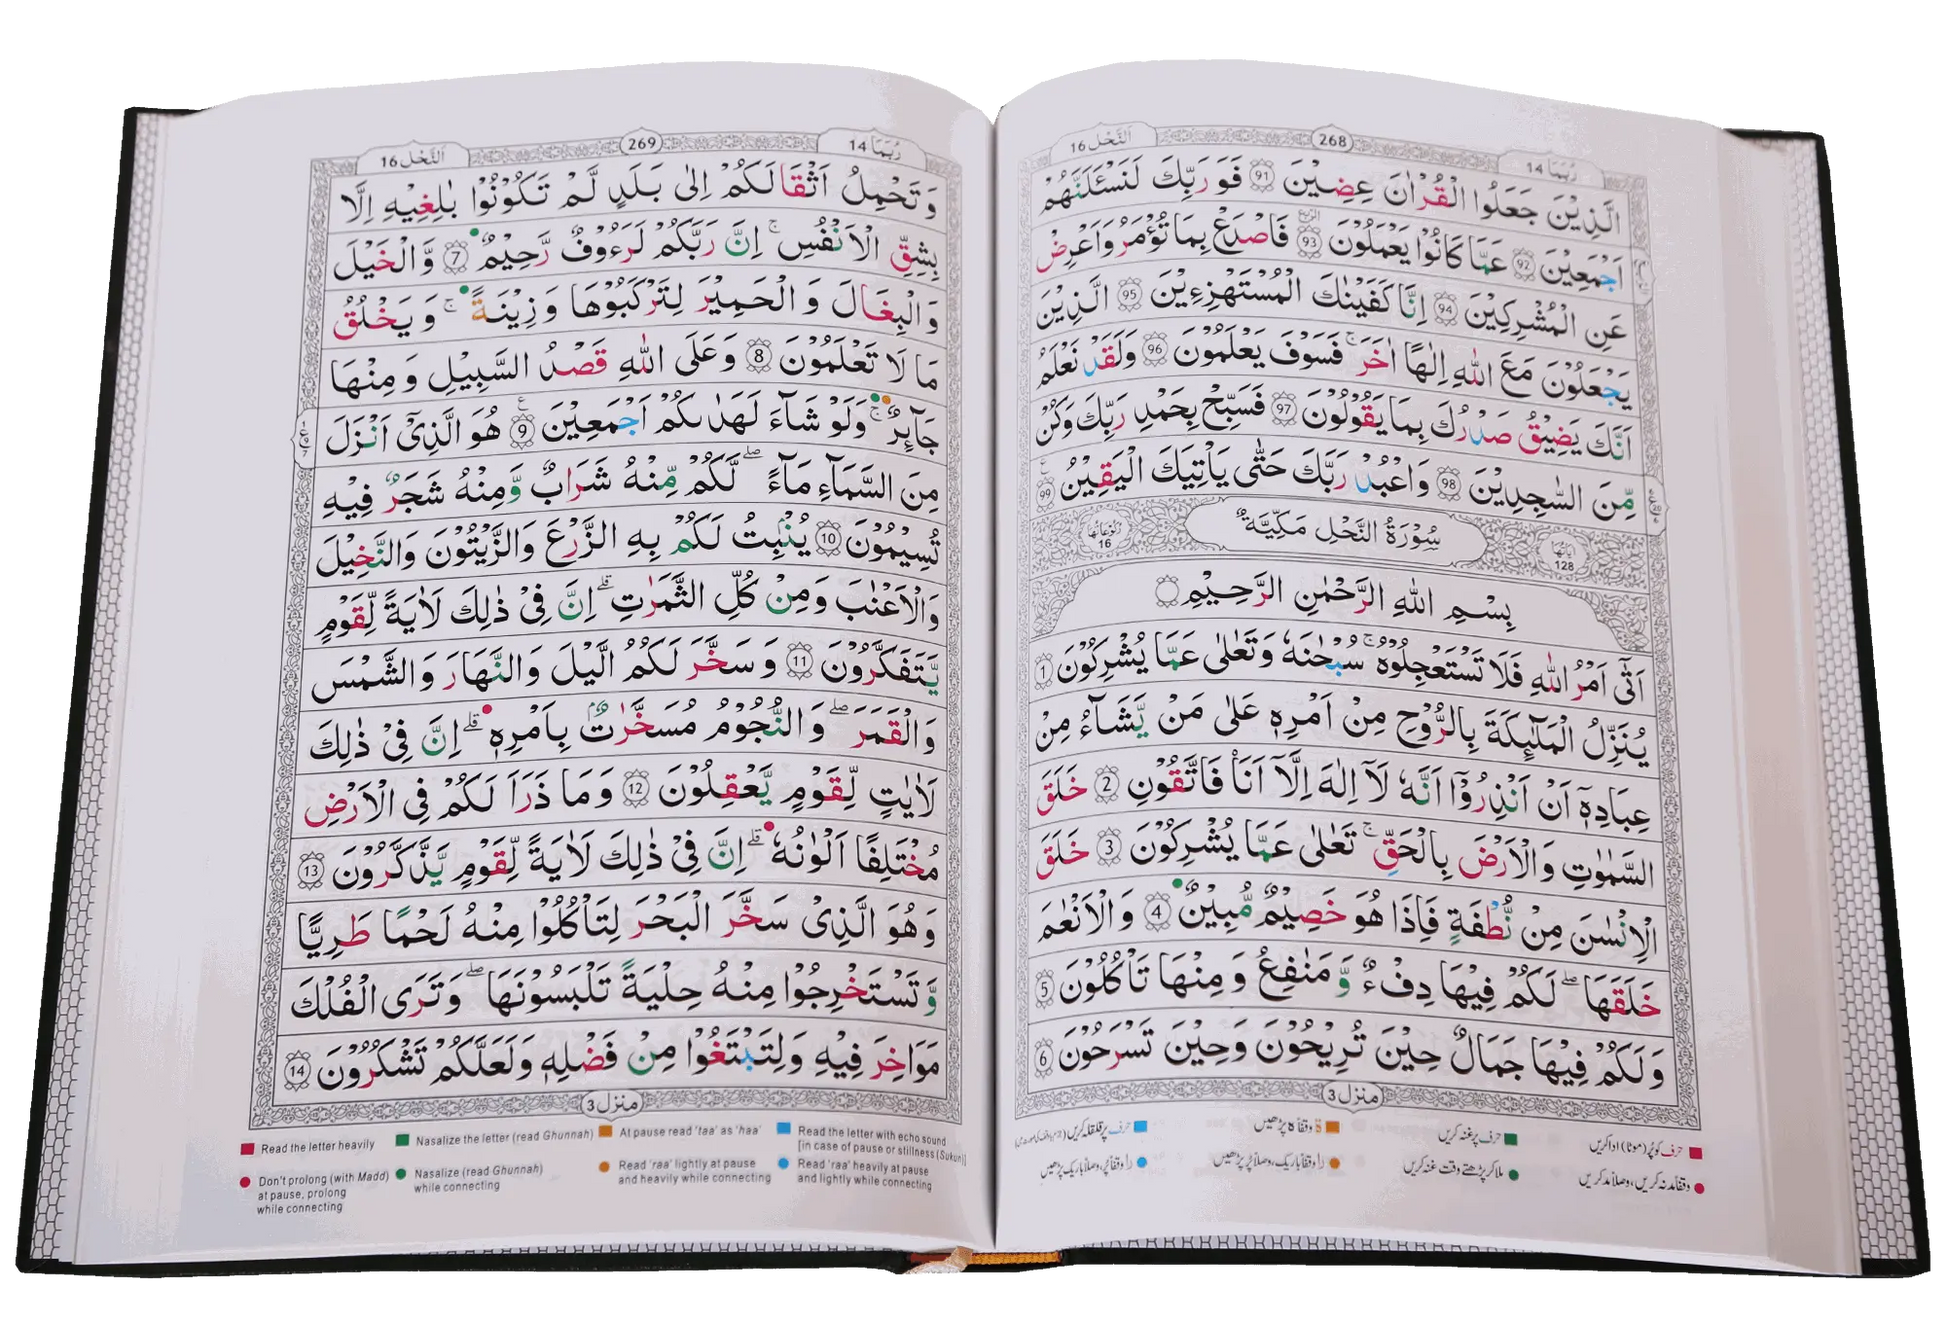 رُبَمَا 14
268
اَلنَّحْل 16
الَّذِيْنَ جَعَلُوا الْقُرْاٰنَ عِضِيْنَ 91 فَوَرَبِّكَ لَنَسْـَٔلَنَّهُمْ
اَجْمَعِيْنَ 92 عَمَّا كَانُوْا يَعْمَلُوْنَ 93 فَاصْدَعْ بِمَا تُؤْمَرُ وَاَعْرِضْ
عَنِ الْمُشْرِكِيْنَ 94 اِنَّا كَفَيْنٰكَ الْمُسْتَهْزِءِيْنَ 95 الَّذِيْنَ
يَجْعَلُوْنَ مَعَ اللّٰهِ اِلٰهًا اٰخَرَ ۚ فَسَوْفَ يَعْلَمُوْنَ 96 وَلَقَدْ نَعْلَمُ
اَنَّكَ يَضِيْقُ صَدْرُكَ بِمَا يَقُوْلُوْنَ 97 فَسَبِّحْ بِحَمْدِ رَبِّكَ وَكُنْ
مِّنَ السّٰجِدِيْنَ 98 وَاعْبُدْ رَبَّكَ حَتّٰى يَاْتِيَكَ الْيَقِيْنُ 99
اٰيَاتُهَا 128
سُوْرَةُ النَّحْلِ مَكِّيَّةٌ
رُكُوْعَاتُهَا 16
بِسْمِ اللّٰهِ الرَّحْمٰنِ الرَّحِيْمِ
اَتٰٓى اَمْرُ اللّٰهِ فَلَا تَسْتَعْجِلُوْهُ ۚ سُبْحٰنَهٗ وَتَعٰلٰى عَمَّا يُشْرِكُوْنَ 1
يُنَزِّلُ الْمَلٰٓئِكَةَ بِالرُّوْحِ مِنْ اَمْرِهٖ عَلٰى مَنْ يَّشَآءُ مِنْ
عِبَادِهٖٓ اَنْ اَنْذِرُوْٓا اَنَّهٗ لَآ اِلٰهَ اِلَّآ اَنَا۠ فَاتَّقُوْنِ 2 خَلَقَ
السَّمٰوٰتِ وَالْاَرْضَ بِالْحَقِّ ۚ تَعٰلٰى عَمَّا يُشْرِكُوْنَ 3 خَلَقَ
الْاِنْسٰنَ مِنْ نُّطْفَةٍ فَاِذَا هُوَ خَصِيْمٌ مُّبِيْنٌ 4 وَالْاَنْعٰمَ
خَلَقَهَا ۖ لَكُمْ فِيْهَا دِفْءٌ وَّمَنٰفِعُ وَمِنْهَا تَاْكُلُوْنَ 5
وَلَكُمْ فِيْهَا جَمَالٌ حِيْنَ تُرِيْحُوْنَ وَحِيْنَ تَسْرَحُوْنَ 6
منزل 3
حرف کو پُر (موٹا) ادا کریں
حرف پر غنہ کریں
ۃ وقفاً ہ پڑھیں
حرف پر قلقلہ کریں
وقفاً مد نہ کریں، وصلاً مد کریں
ملا کر پڑھتے وقت غنہ کریں
را وقفاً باریک، وصلاً پُر پڑھیں
را وقفاً پُر، وصلاً باریک پڑھیں
رُبَمَا 14
269
اَلنَّحْل 16
وَتَحْمِلُ اَثْقَالَكُمْ اِلٰى بَلَدٍ لَّمْ تَكُوْنُوْا بٰلِغِيْهِ اِلَّا
بِشِقِّ الْاَنْفُسِ ۚ اِنَّ رَبَّكُمْ لَرَءُوْفٌ رَّحِيْمٌ 7 وَّالْخَيْلَ
وَالْبِغَالَ وَالْحَمِيْرَ لِتَرْكَبُوْهَا وَزِيْنَةً ۚ وَيَخْلُقُ
مَا لَا تَعْلَمُوْنَ 8 وَعَلَى اللّٰهِ قَصْدُ السَّبِيْلِ وَمِنْهَا
جَآئِرٌ ۚ وَلَوْ شَآءَ لَهَدٰىكُمْ اَجْمَعِيْنَ 9 هُوَ الَّذِيْٓ اَنْزَلَ
مِنَ السَّمَآءِ مَآءً ۖ لَّكُمْ مِّنْهُ شَرَابٌ وَّمِنْهُ شَجَرٌ فِيْهِ
تُسِيْمُوْنَ 10 يُنْۢبِتُ لَكُمْ بِهِ الزَّرْعَ وَالزَّيْتُوْنَ وَالنَّخِيْلَ
وَالْاَعْنٰبَ وَمِنْ كُلِّ الثَّمَرٰتِ ۗ اِنَّ فِيْ ذٰلِكَ لَاٰيَةً لِّقَوْمٍ
يَّتَفَكَّرُوْنَ 11 وَسَخَّرَ لَكُمُ الَّيْلَ وَالنَّهَارَ وَالشَّمْسَ
وَالْقَمَرَ ۖ وَالنُّجُوْمُ مُسَخَّرٰتٌۢ بِاَمْرِهٖ ۗ اِنَّ فِيْ ذٰلِكَ
لَاٰيٰتٍ لِّقَوْمٍ يَّعْقِلُوْنَ 12 وَمَا ذَرَاَ لَكُمْ فِى الْاَرْضِ
مُخْتَلِفًا اَلْوَانُهٗ ۗ اِنَّ فِيْ ذٰلِكَ لَاٰيَةً لِّقَوْمٍ يَّذَّكَّرُوْنَ 13
وَهُوَ الَّذِيْ سَخَّرَ الْبَحْرَ لِتَاْكُلُوْا مِنْهُ لَحْمًا طَرِيًّا
وَّتَسْتَخْرِجُوْا مِنْهُ حِلْيَةً تَلْبَسُوْنَهَا ۖ وَتَرَى الْفُلْكَ
مَوَاخِرَ فِيْهِ وَلِتَبْتَغُوْا مِنْ فَضْلِهٖ وَلَعَلَّكُمْ تَشْكُرُوْنَ 14
منزل 3
Read the letter heavily
Nasalize the letter (read Ghunnah)
At pause read 'taa' as 'haa'
Read the letter with echo sound
[in case of pause or stillness (Sukun)]
Don't prolong (with Madd)
at pause, prolong
while connecting
Nasalize (read Ghunnah)
while connecting
Read 'raa' lightly at pause
and heavily while connecting
Read 'raa' heavily at pause
and lightly while connecting